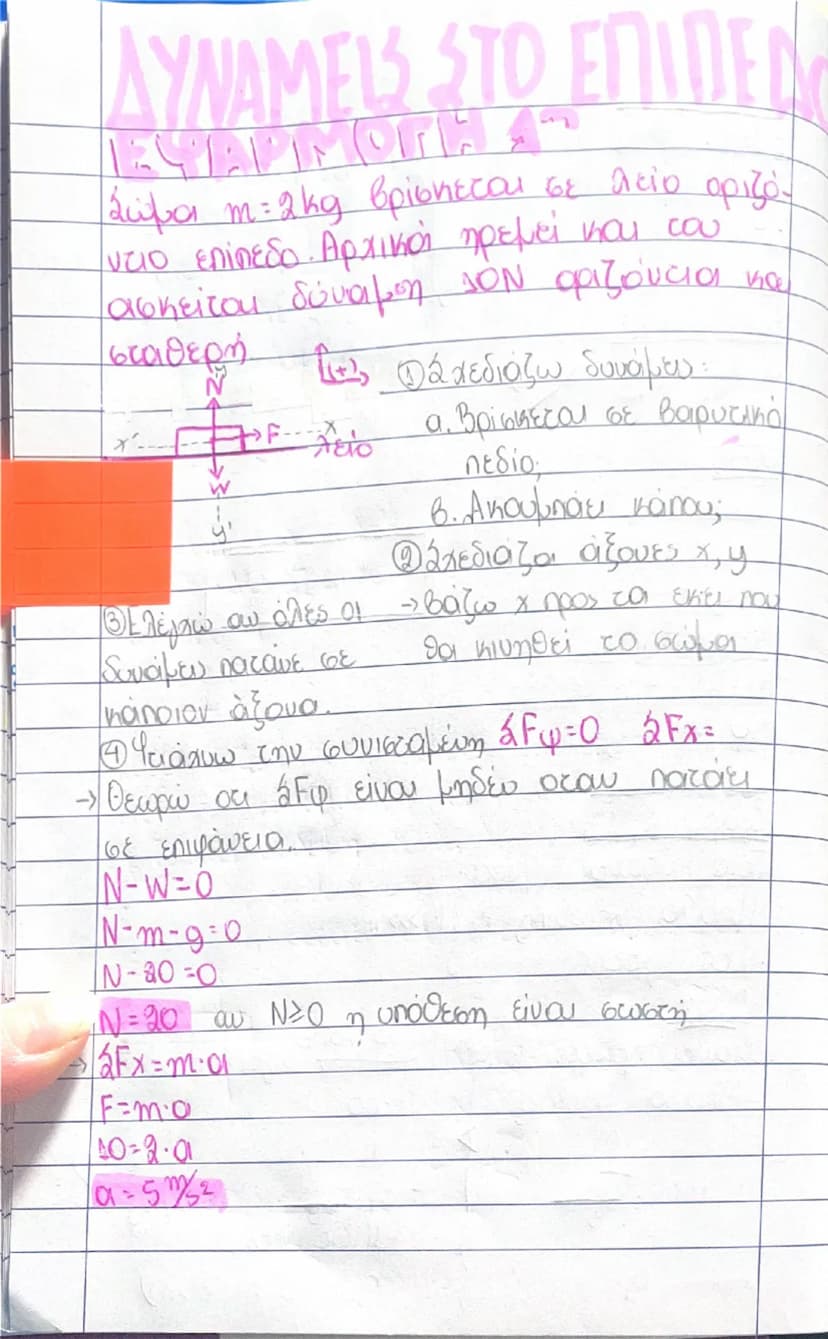 ΔΥΝΑΜΕΙΣ ΣΤΟ ΕΠΙΠΕΔΟ
ΕΦΑΡΜΟΓΗ 1η
Σώμα m=2kg βρίσκεται σε λείο οριζό-
ντιο επίπεδο. Αρχικά ηρεμεί και του
ασκείται δύναμη 10N οριζόντια και
σταθερή
(+)
y
N
F
x
x'
λείο
W
y'
① Σχεδιάζω δυνάμεις:
α. Βρίσκεται σε βαρυτικό
πεδίο;
β. Ακουμπάει κάπου;
② Σχεδιάζω άξονες x, y
→ Βάζω x προς τα εκεί που
θα κινηθεί το σώμα
③ Ελέγχω αν όλες οι
δυνάμεις πατάνε σε
κάποιον άξονα.
④ Φτιάχνω την συνισταμένη ΣFψ=0 ΣFx=
→ Θεωρώ οτι ΣFψ είναι μηδέν οταν πατάει
σε επιφάνεια.
N-W=0
N-m-g=0
N-20=0
N=20 αν N≥0 η υπόθεση είναι σωστή
→ ΣFx=m·a
F=m·a
10=2·a
a=5 m/s2